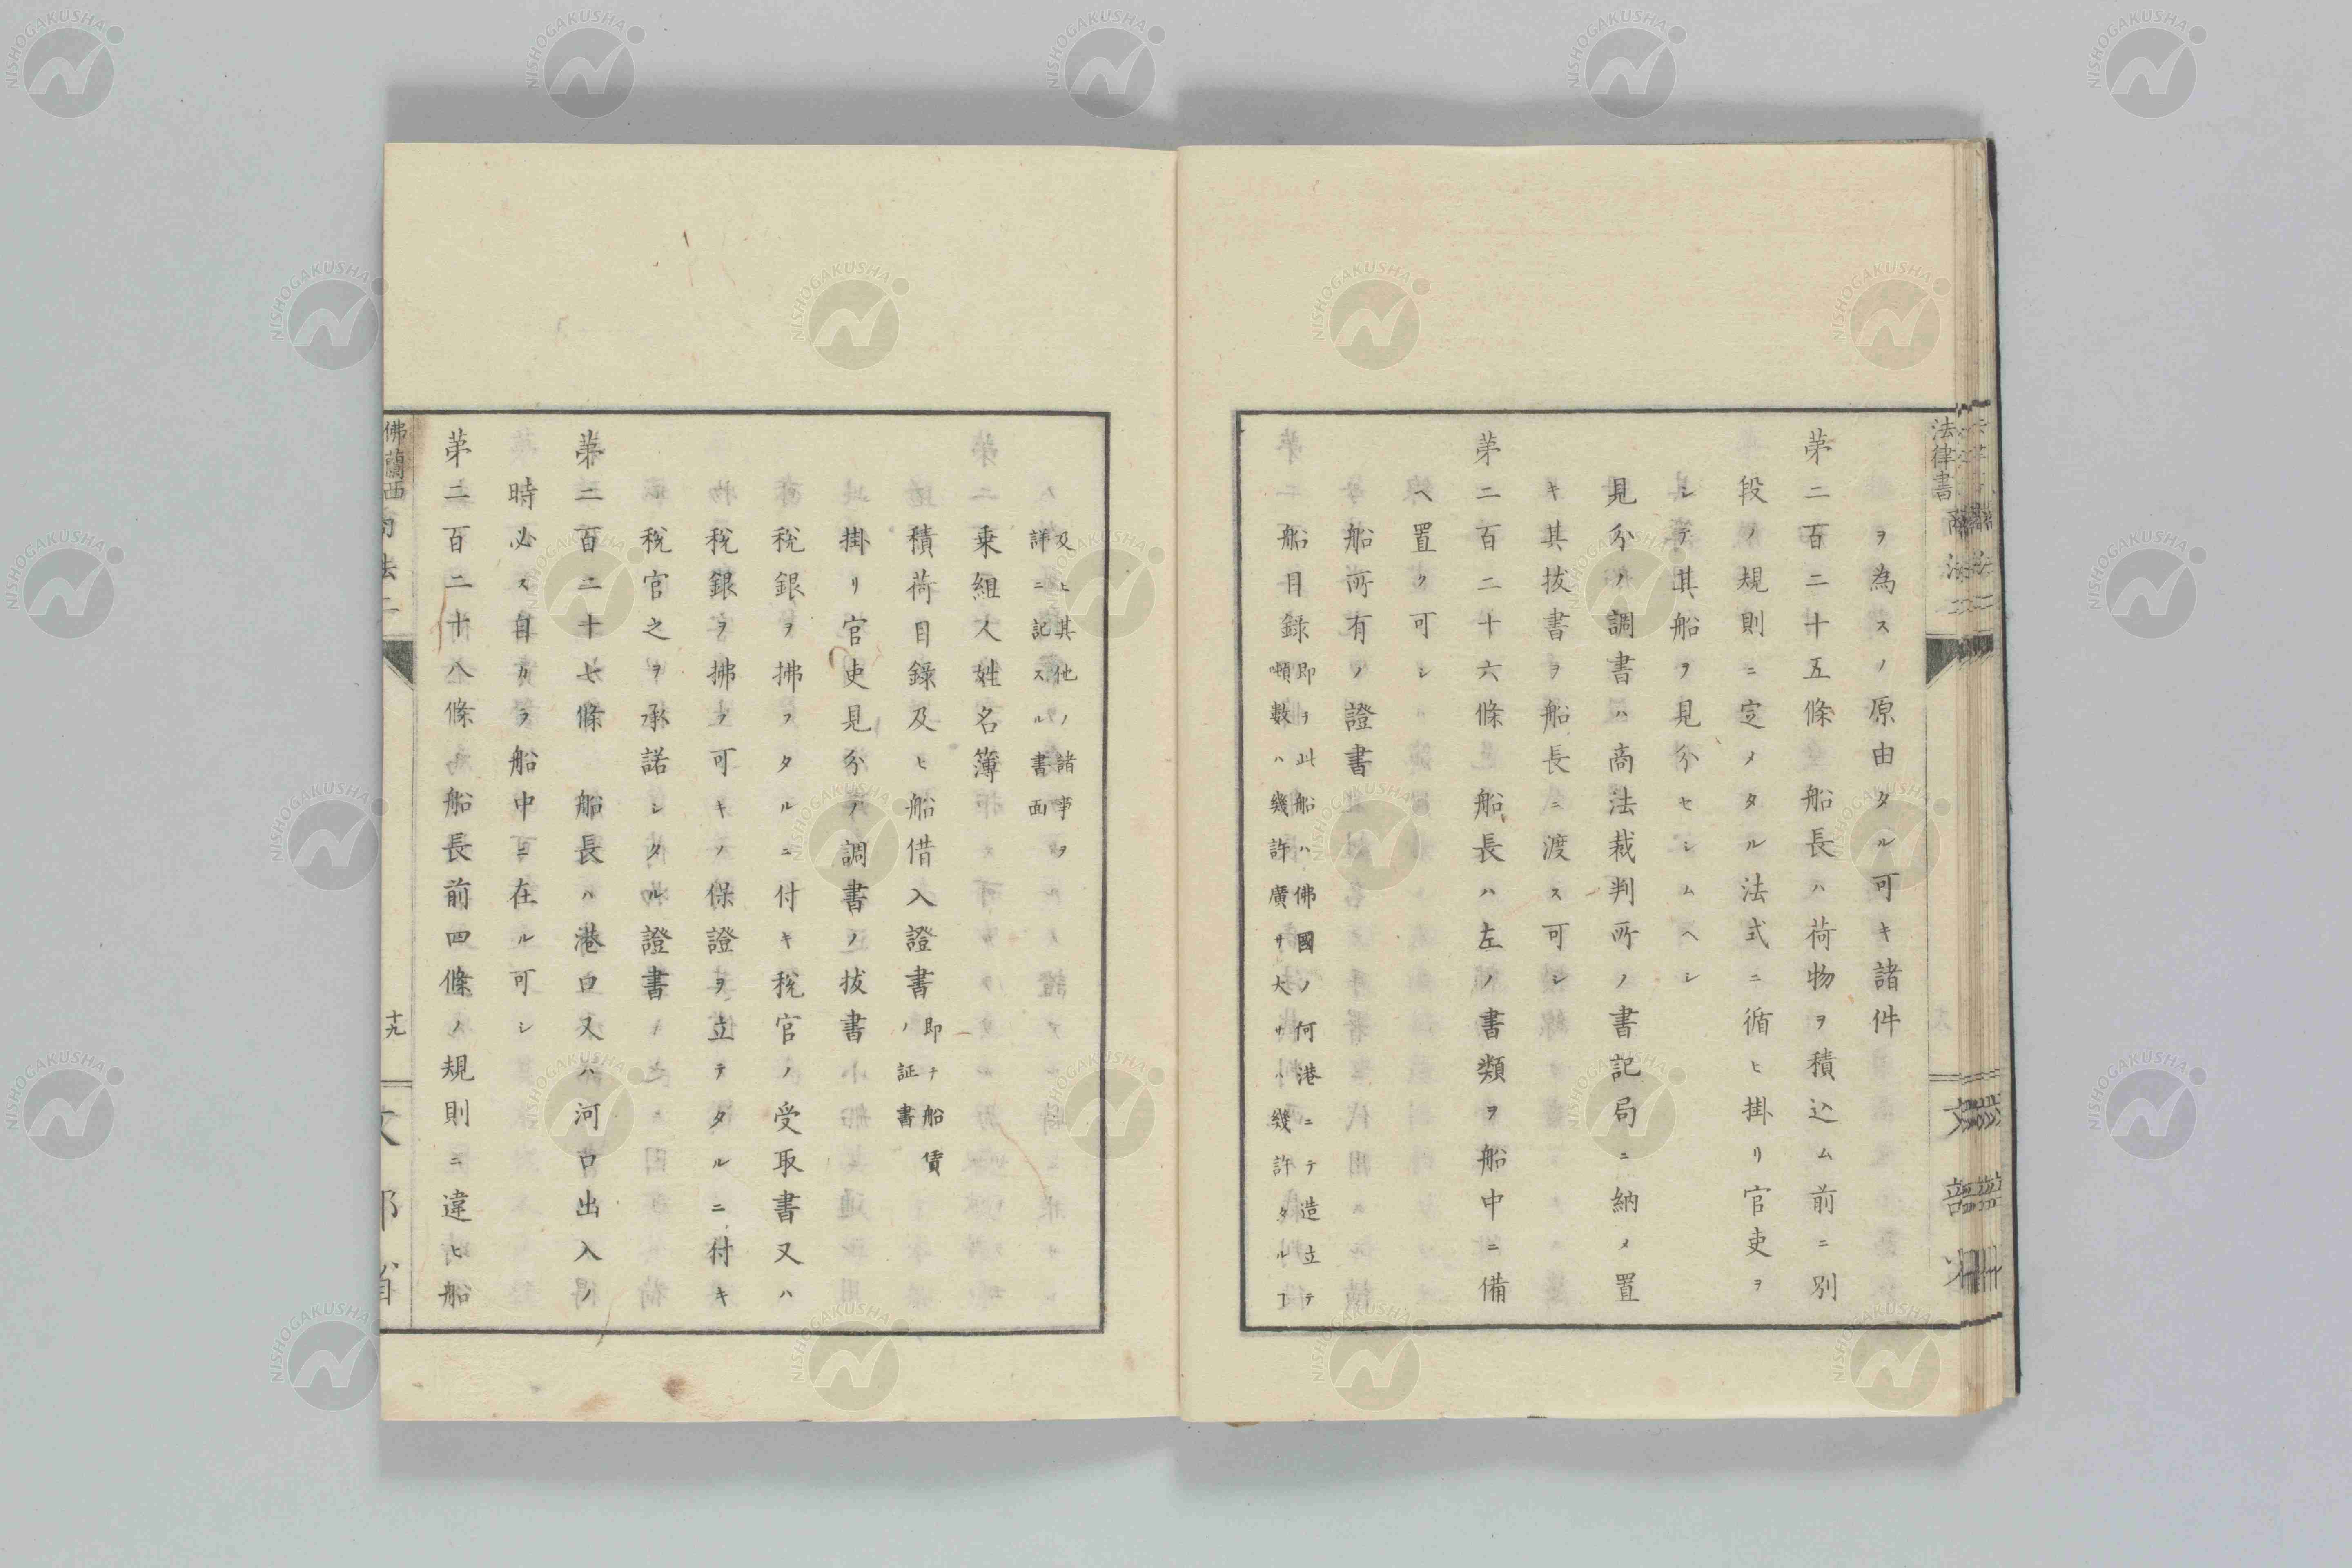 ヲ為スノ原由タル可キ諸件
第二百二十五條 船長ハ荷物ヲ積込ム前ニ別
段ノ規則ニ定メタル法式ニ循ヒ掛リ官吏ヲ
シテ其船ヲ見分セシムヘシ
見分ノ調書ハ商法裁判所ノ書記局ニ納メ置
キ其拔書ヲ船長ニ渡ス可シ
第二百二十六條 船長ハ左ノ書類ヲ船中ニ備
ヘ置ク可シ
船所有ノ證書
船目錄即ヲ此船ハ佛國ノ何港ニテ造立テ
噸數ハ幾許廣サ大サハ幾許タルヿ
及ヒ其他ノ諸事ヲ
詳ニ記スル書面
乗組人姓名簿
積荷目錄及ヒ船借入證書即チ船賃
ノ証書
掛リ官吏見分ノ調書ノ拔書
稅銀ヲ拂フタルニ付キ稅官ノ受取書又ハ
稅銀ヲ拂フ可キノ保證ヲ立テタルニ付キ
稅官之ヲ承諾シタル證書
第二百二十七條 船長ハ港口又ハ河口出入ノ
時必ス自カラ船中ニ在ル可シ
第二百二十八條 船長前四條ノ規則ニ違ヒ船
法律書
佛蘭西
十九
NISHOGAKUSHA